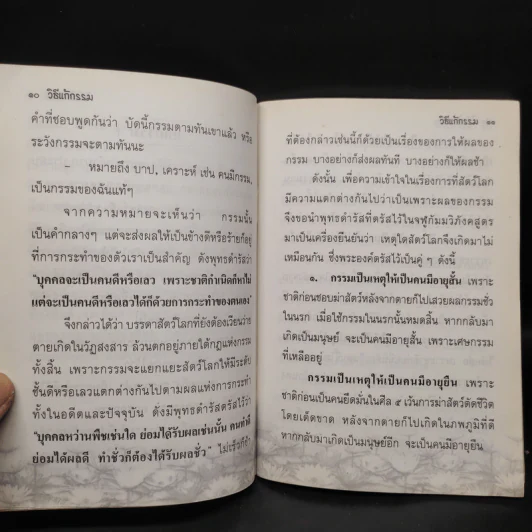 ๑๐ วิธีแก้กรรม
คำที่ชอบพูดกันว่า บัดนี้กรรมตามทันเขาแล้ว หรือ
ระวังกรรมจะตามทันนะ
- หมายถึง บาป, เคราะห์ เช่น คนมีกรรม,
เป็นกรรมของฉันแท้ๆ
จากความหมายจะเห็นว่า กรรมนั้น
เป็นคำกลางๆ แต่จะส่งผลให้เป็นข้างดีหรือร้ายก็อยู่
ที่การกระทำของตัวเราเป็นสำคัญ ดังพุทธดำรัสว่า
"บุคคลจะเป็นคนดีหรือเลว เพราะชาติกำเนิดก็หาไม่
แต่จะเป็นคนดีหรือเลวได้ก็ด้วยการกระทำของตนเอง"
จึงกล่าวได้ว่า บรรดาสัตว์โลกที่ยังต้องเวียนว่าย
ตายเกิดในวัฏสงสาร ล้วนตกอยู่ภายใต้กฎแห่งกรรม
ทั้งสิ้น เพราะกรรมจะแยกแยะสัตว์โลกให้มีระดับ
ชั้นดีหรือเลวแตกต่างกันไปตามผลแห่งการกระทำ
ทั้งในอดีตและปัจจุบัน ดังมีพุทธดำรัสตรัสไว้ว่า
"บุคคลหว่านพืชเช่นใด ย่อมได้รับผลเช่นนั้น คนทำดี
ย่อมได้ผลดี ทำชั่วก็ต้องได้รับผลชั่ว"
วิธีแก้กรรม ๑๑
ที่ต้องกล่าวเช่นนี้ก็ด้วยเป็นเรื่องของการให้ผลของ
กรรม บางอย่างก็ส่งผลทันที บางอย่างก็ให้ผลช้า
ดังนั้น เพื่อความเข้าใจในเรื่องการที่สัตว์โลก
มีความแตกต่างกันไปว่าเป็นเพราะผลของกรรม
จึงขอนำพุทธดำรัสที่ตรัสไว้ในจูฬกัมมวิภังคสูตร
มาเป็นเครื่องยืนยันว่า เหตุใดสัตว์โลกจึงเกิดมาไม่
เหมือนกัน ซึ่งพระองค์ตรัสไว้เป็นคู่ ๆ ดังนี้
๑. กรรมเป็นเหตุให้เป็นคนมีอายุสั้น เพราะ
ชาติก่อนชอบฆ่าสัตว์หลังจากตายก็ไปเสวยผลกรรมชั่ว
ในนรก เมื่อใช้กรรมในนรกนั้นหมดสิ้น หากกลับมา
เกิดเป็นมนุษย์ จะเป็นคนมีอายุสั้น เพราะเศษกรรม
ที่เหลืออยู่
กรรมเป็นเหตุให้เป็นคนมีอายุยืน เพราะ
ชาติก่อนเป็นคนยึดมั่นในศีล ๕ เว้นการฆ่าสัตว์ตัดชีวิต
โดยเด็ดขาด หลังจากตายก็ไปเกิดในภพภูมิที่ดี
หากกลับมาเกิดเป็นมนุษย์อีก จะเป็นคนมีอายุยืน